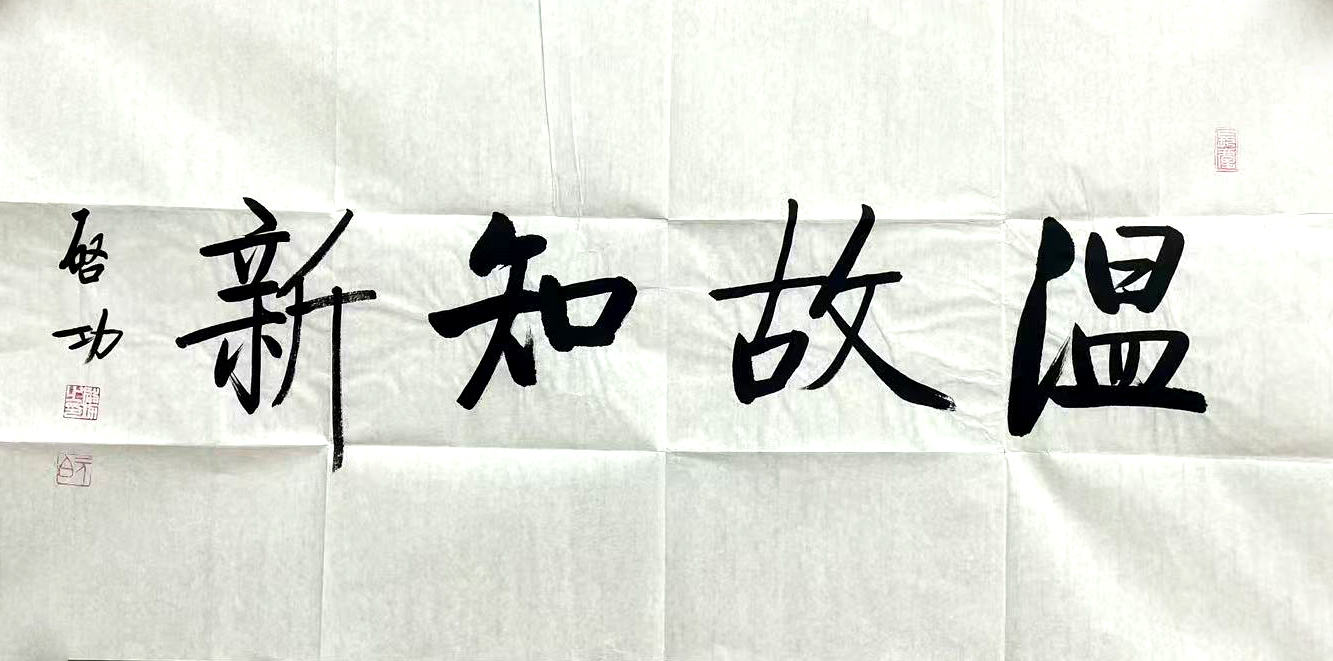 温故知新
启功